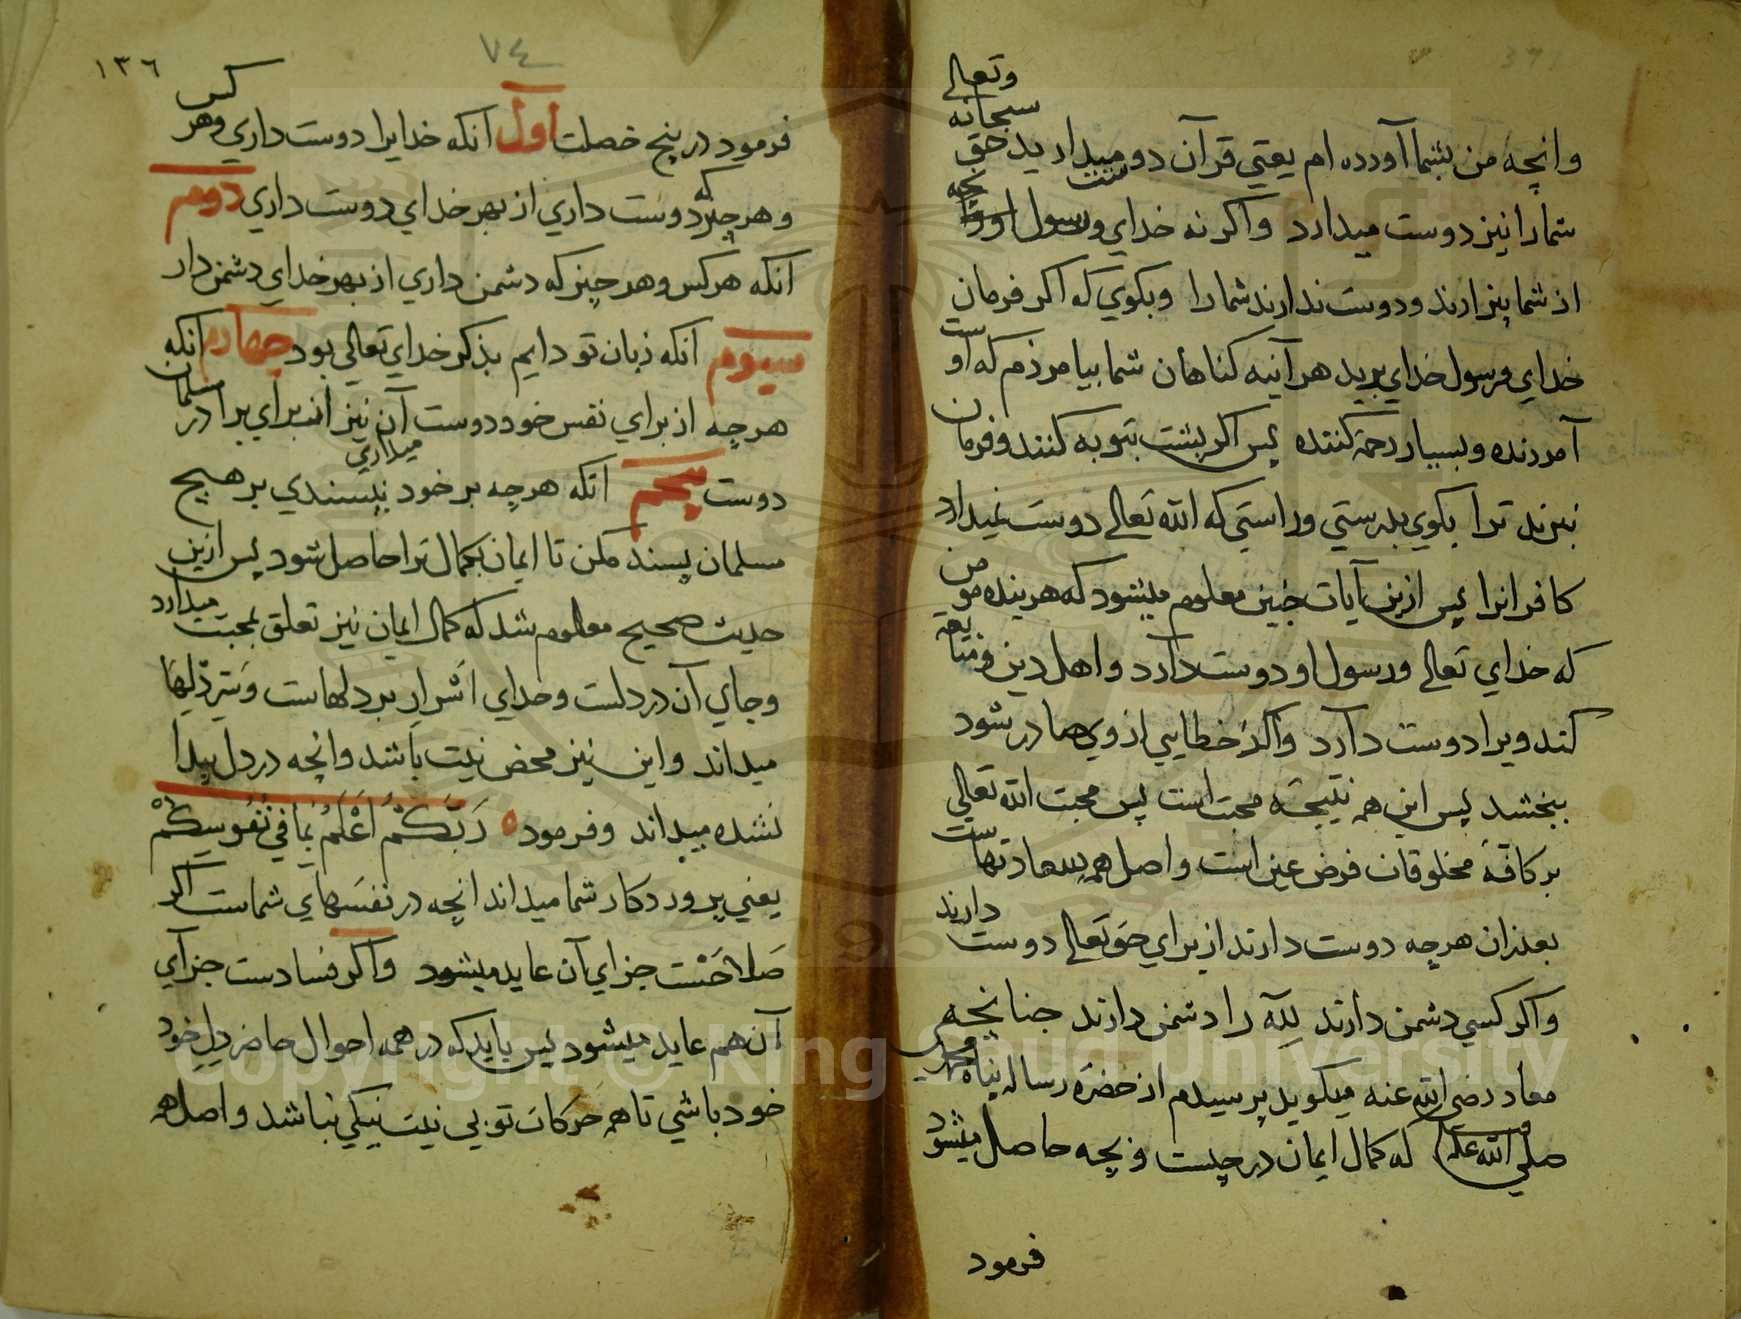 وانچه من بشما آورده ام یعنی قرآن دوست میدارید حق سبحانه وتعالی
شمارا نیز دوست میدارد واکر نه خدای ورسول او
از شما بیزارند ودوست ندارند شما را وبکوی که اکر فرمان
خدای ورسول خدای برید هر آینه کناهان شما بیامرزم که اوست
آمرزنده وبسیار رحمة کننده پس اکر پشت بتوبه کنند وفرمان
نبرند ترا بکوی بدرستی وراستی که الله تعالی دوست نمیدارد
کافرانرا پس ازین آیات چنین معلوم میشود که هر بنده مومن
که خدای تعالی ورسول او دوست دارد واهل دین ومتابعة
کند ویرا دوست دارد واکر خطایی از وی صادر شود
ببخشد پس این همه نتیجه محبت است پس محبت الله تعالی
بر کافهٔ مخلوقان فرض عین است واصل همه سعادتهاست
بعد از ان هرچه دوست دارند از برای حق تعالی دوست دارند
واکر کسی دشمن دارند لله را دشمن دارند چنانچه
معاد رضی الله عنه میکوید پرسیدم از حضرة رساله پناه محمدی
صلی الله علیه وسلم که کمال ایمان در چیست وبچه حاصل میشود
فرمود
٧٤
١٣٦
فرمود در پنج خصلت اول آنکه خدایرا دوست داری وهر کس
وهر چیز که دوست داری از بهر خدای دوست داری دوم
آنکه هر کس وهر چیز که دشمن داری از بهر خدای دشمن دار
سیوم آنکه زبان تو دایم بذکر خدای تعالی بود چهارم آنکه
هرچه از برای نفس خود دوست میداری آن نیز از برای برادر مسلمان
دوست پنجم آنکه هرچه بر خود نپسندی بر هیچ
مسلمان پسند مکن تا ایمان بکمال ترا حاصل شود پس ازین
حدیث صحیح معلوم شد که کمال ایمان نیز تعلق بمحبت میدارد
وجای آن در دلست وخدای اشرار بر دلهاست وسر دلها
میداند واین نیز محض نیت باشد وانچه در دل پیدا
نشده میداند وفرمود ه رَبُّكُمْ اَعْلَمُ بِمَا فِي نُفُوسِكُمْ
یعنی پروردکار شما میداند انچه در نفسهای شماست اکر
صلاحست جزای آن عاید میشود واکر فسادست جزای
آن هم عاید میشود پس باید که در همه احوال حاضر دل خود
خود باشی تا همه حرکات تو بی نیت نیکی نباشد واصل همه
Copyright © King Saud University